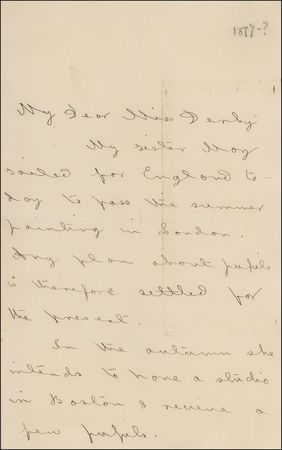 1877-?
My Dear Miss Denby
My sister May
sailed for England to-
day to pass the summer
painting in London.
Any plan about pupils
is therefore settled for
the present.
In the autumn she
intends to have a studio
in Boston & receive a
few pupils.